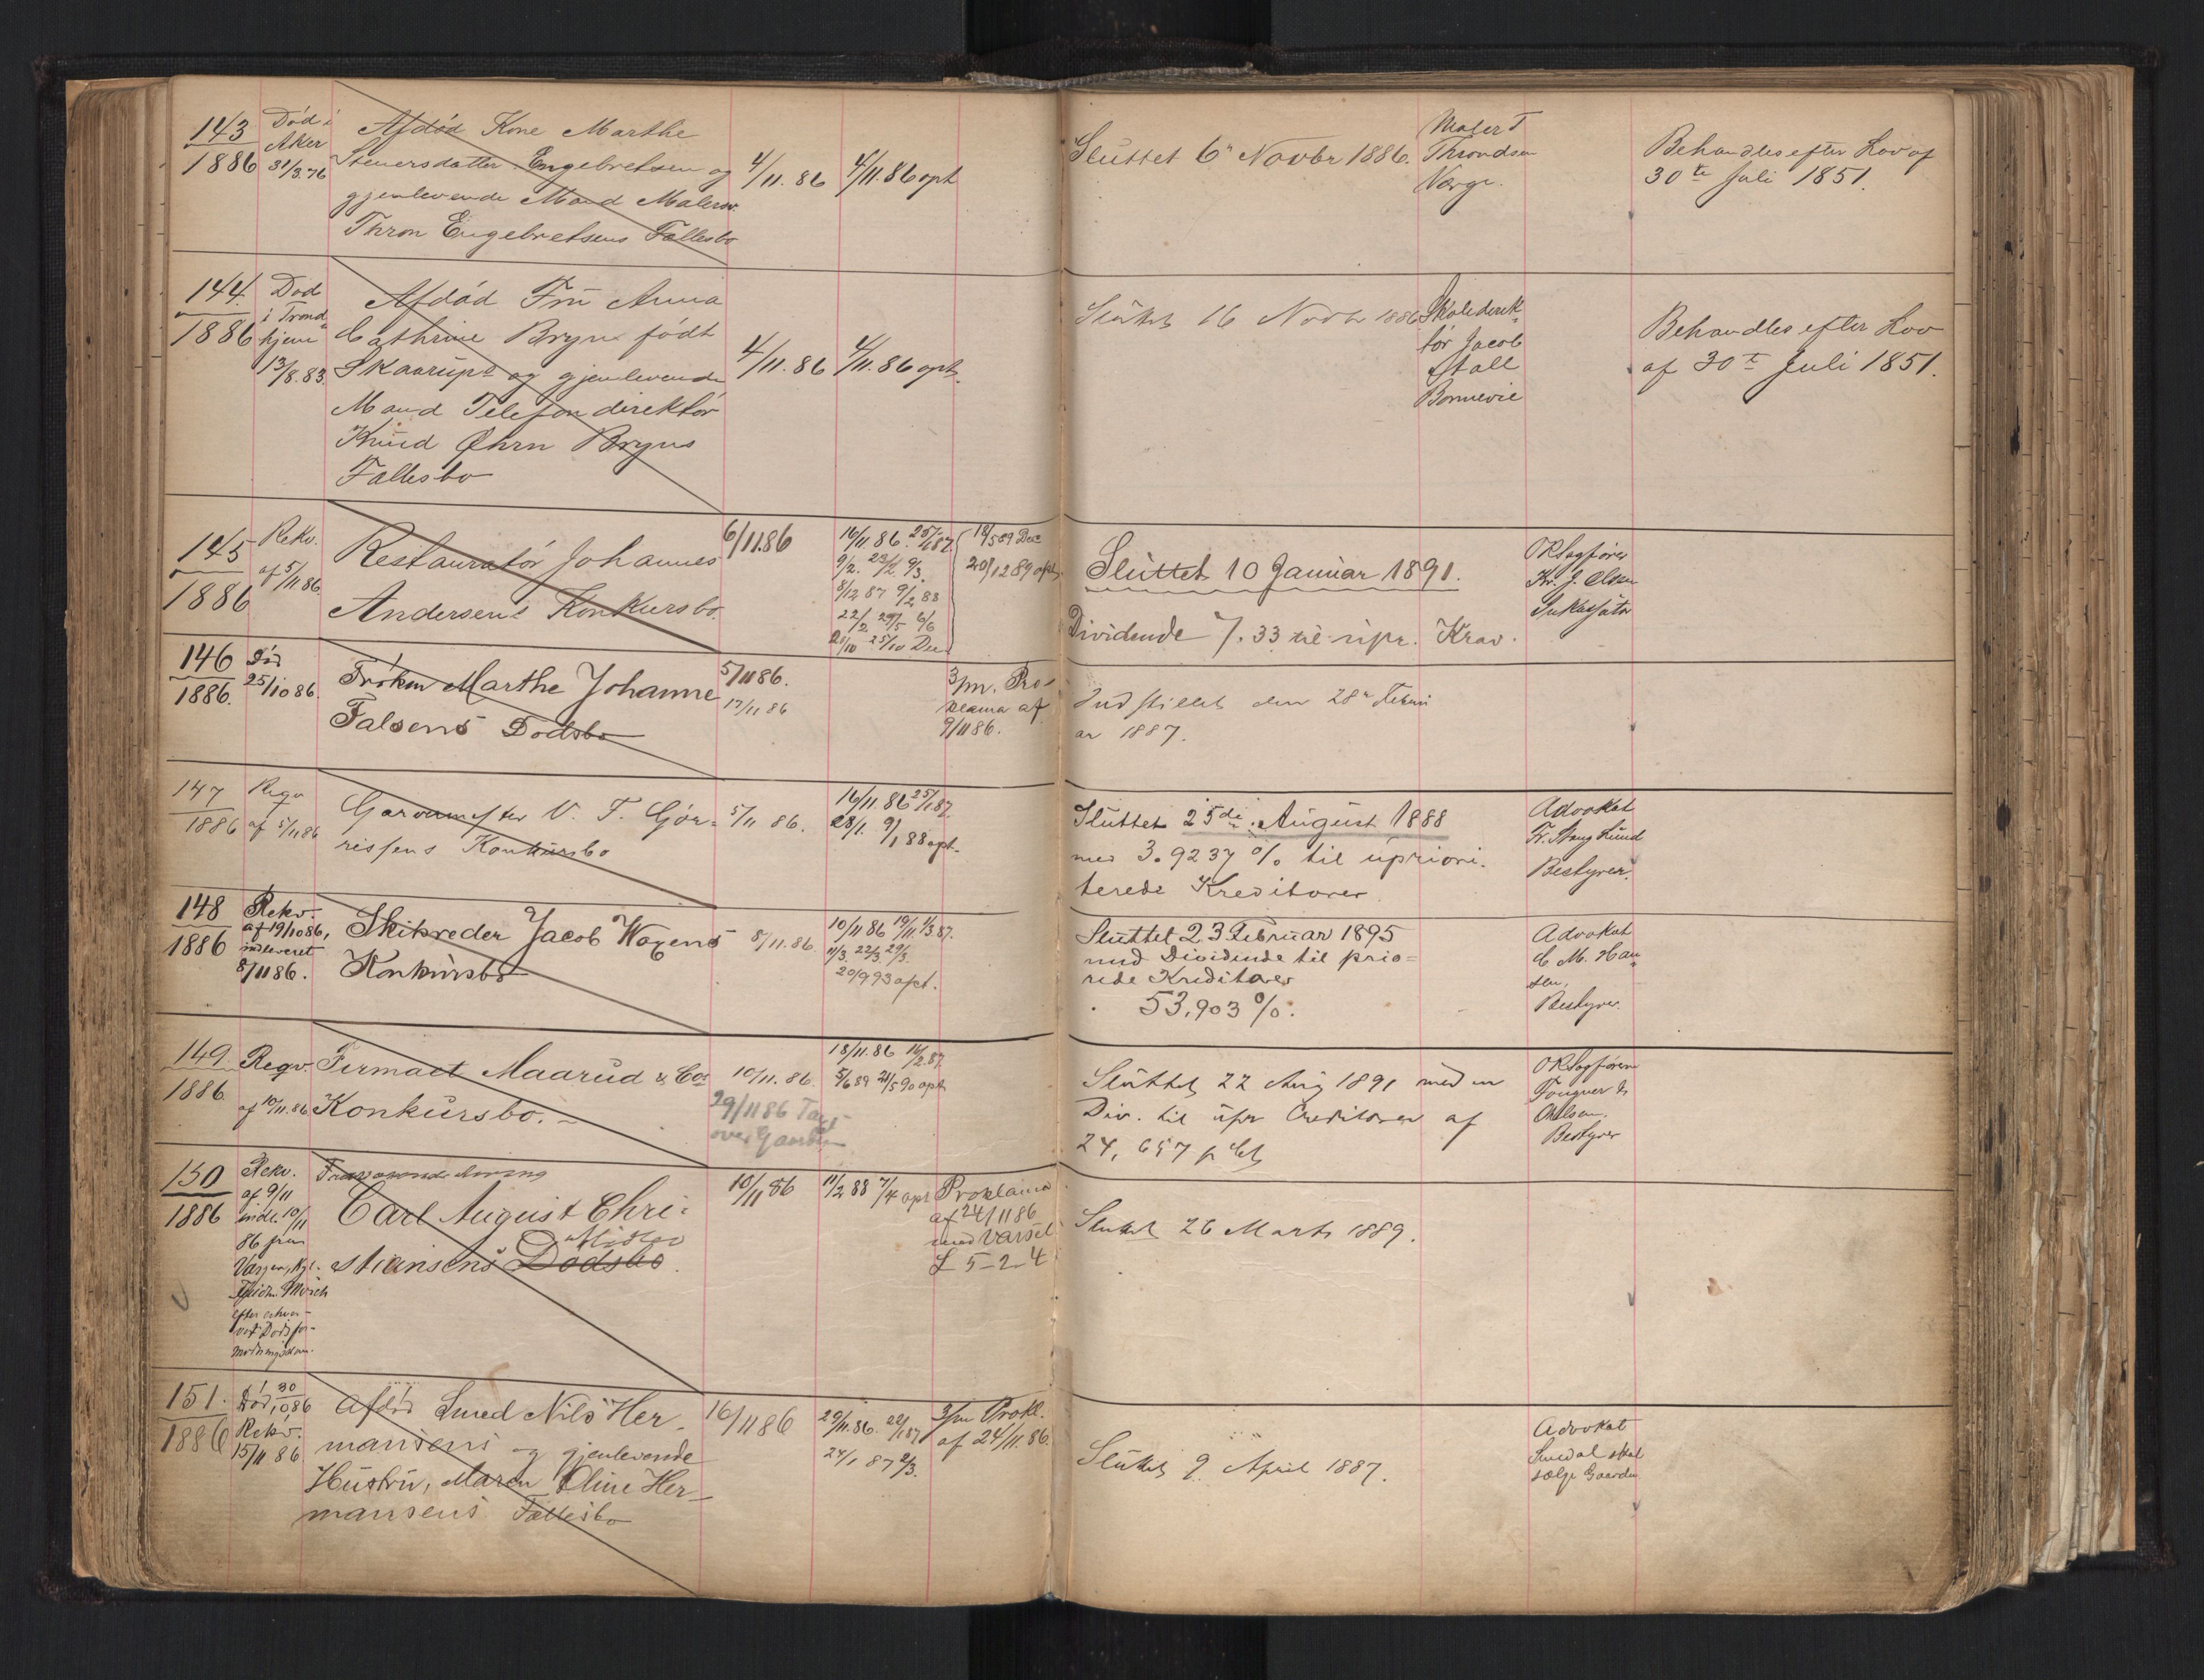 143
1886
Død i
Aker
31/3.76
Afdød Kone Marthe
Steuersdatter Engebretsen og
gjenlevende Mand Malersv.
Thron Engebretsens Fællesbo
4/11. 86
4/11. 86 opt
Sluttet 6' Novbr 1886.
Maler T
Throndsen
Værge.
Behandles efter Lov af
30te Juli 1851.
144.
1886
Død
i Trond-
hjem
13/8.83.
Afdød Fru Anna
Cathrine Bryn født
Skaarup og gjenlevende
Mand Telefondirektør
Knud Øhrn Bryns
Fællesbo
4/11. 86
4/11. 86 opt.
Sluttet 16 Novbr 1886
Skoledirek-
tør Jacob
Aall
Bonnevie
Behandles efter Lov
af 30te Juli 1851.
145
1886
Rekv.
af 5/11 86.
Restauratør Johannes
Andersens Konkursbo.
6/11.86
16/11.86. 25/1 87.
9/2. 23/2 9/3.
8/12 87 9/2 88
22/2 29/5 6/6
21/10 25/10 Dec
18/5 89 Dec
20/12 89 opt.
Sluttet 10 Januar 1891.
Dividende 7.33 til upr. Krav.
ORSagfører
Kr. J. Olsen
Inkassator
146
1886.
Død
25/10 86.
Frøken Marthe Johanne
Falsens Dødsbo
5/11 86.
17/11 86
3/m. Pro-
klama af
9/11 86.
Indstillet den 28' Febru
ar 1887.
147
1886
Reqv
af 5/11 86
Garvermester V. T. Gør-
rissens Konkursbo
5/11 86.
16/11.86 25/1 87.
28/1. 9/1 88 opt.
Sluttet 25de August 1888
med 3.9237 % til upriori-
terede Kreditorer
Advokat
Fr. Stang Lund
Bestyrer.
148
1886
Rekv.
af 19/10 86,
indleveret
8/11 86.
Skibsreder Jacob Woxens
Konkursbo
8/11.86.
10/11 86 19/11. 1/3 87.
11/3. 22/3. 29/3.
20/9 93 opt.
Sluttet 23 Februar 1895
med Dividende til prio=
rede Kreditorer
53,903 %.
Advokat
C. M. Han-
sen,
Bestyrer.
149.
1886
Reqv.
af 10/11.86
Firmaet Maarud & Co's
Konkursbo.
10/11. 86.
29/11 86 Taxt
over Gaarden
18/11.86 16/2 87.
5/6 89 21/5 90 opt
Sluttet 22 Aug 1891 med en
Div. til upr Creditorer af
24, 657 pCt
ORSagførerne
Fougner &
Olsen.
Bestyrer
150
1886
Rekv.
af 9/11
indl. 10/11
86 fra
Værgen,
efter erhver-
vet Dødsfor-
modningsdom.
Fraværende
Carl August Chri-
stiansens Dødsbo.
Midler
10/11 86
11/2 88 7/4 opt
Proklama
af 24/11 86
med Varsel
L 5-2-4
Sluttet 26 Marts 1889.
151.
1886
Død 30/10 86
Rekv.
15/11 86
Afdød Smed Nils Her-
mansens og gjenlevende
Hustru, Maren Oline Her-
mansens Fællesbo
16/11 86
29/11.86. 22/1 87
24/1 87 2/3.
3/m Prokl.
af 24/11.86.
Sluttet 9. April 1887.
Advokat
Smedal skal
sælge Gaarden